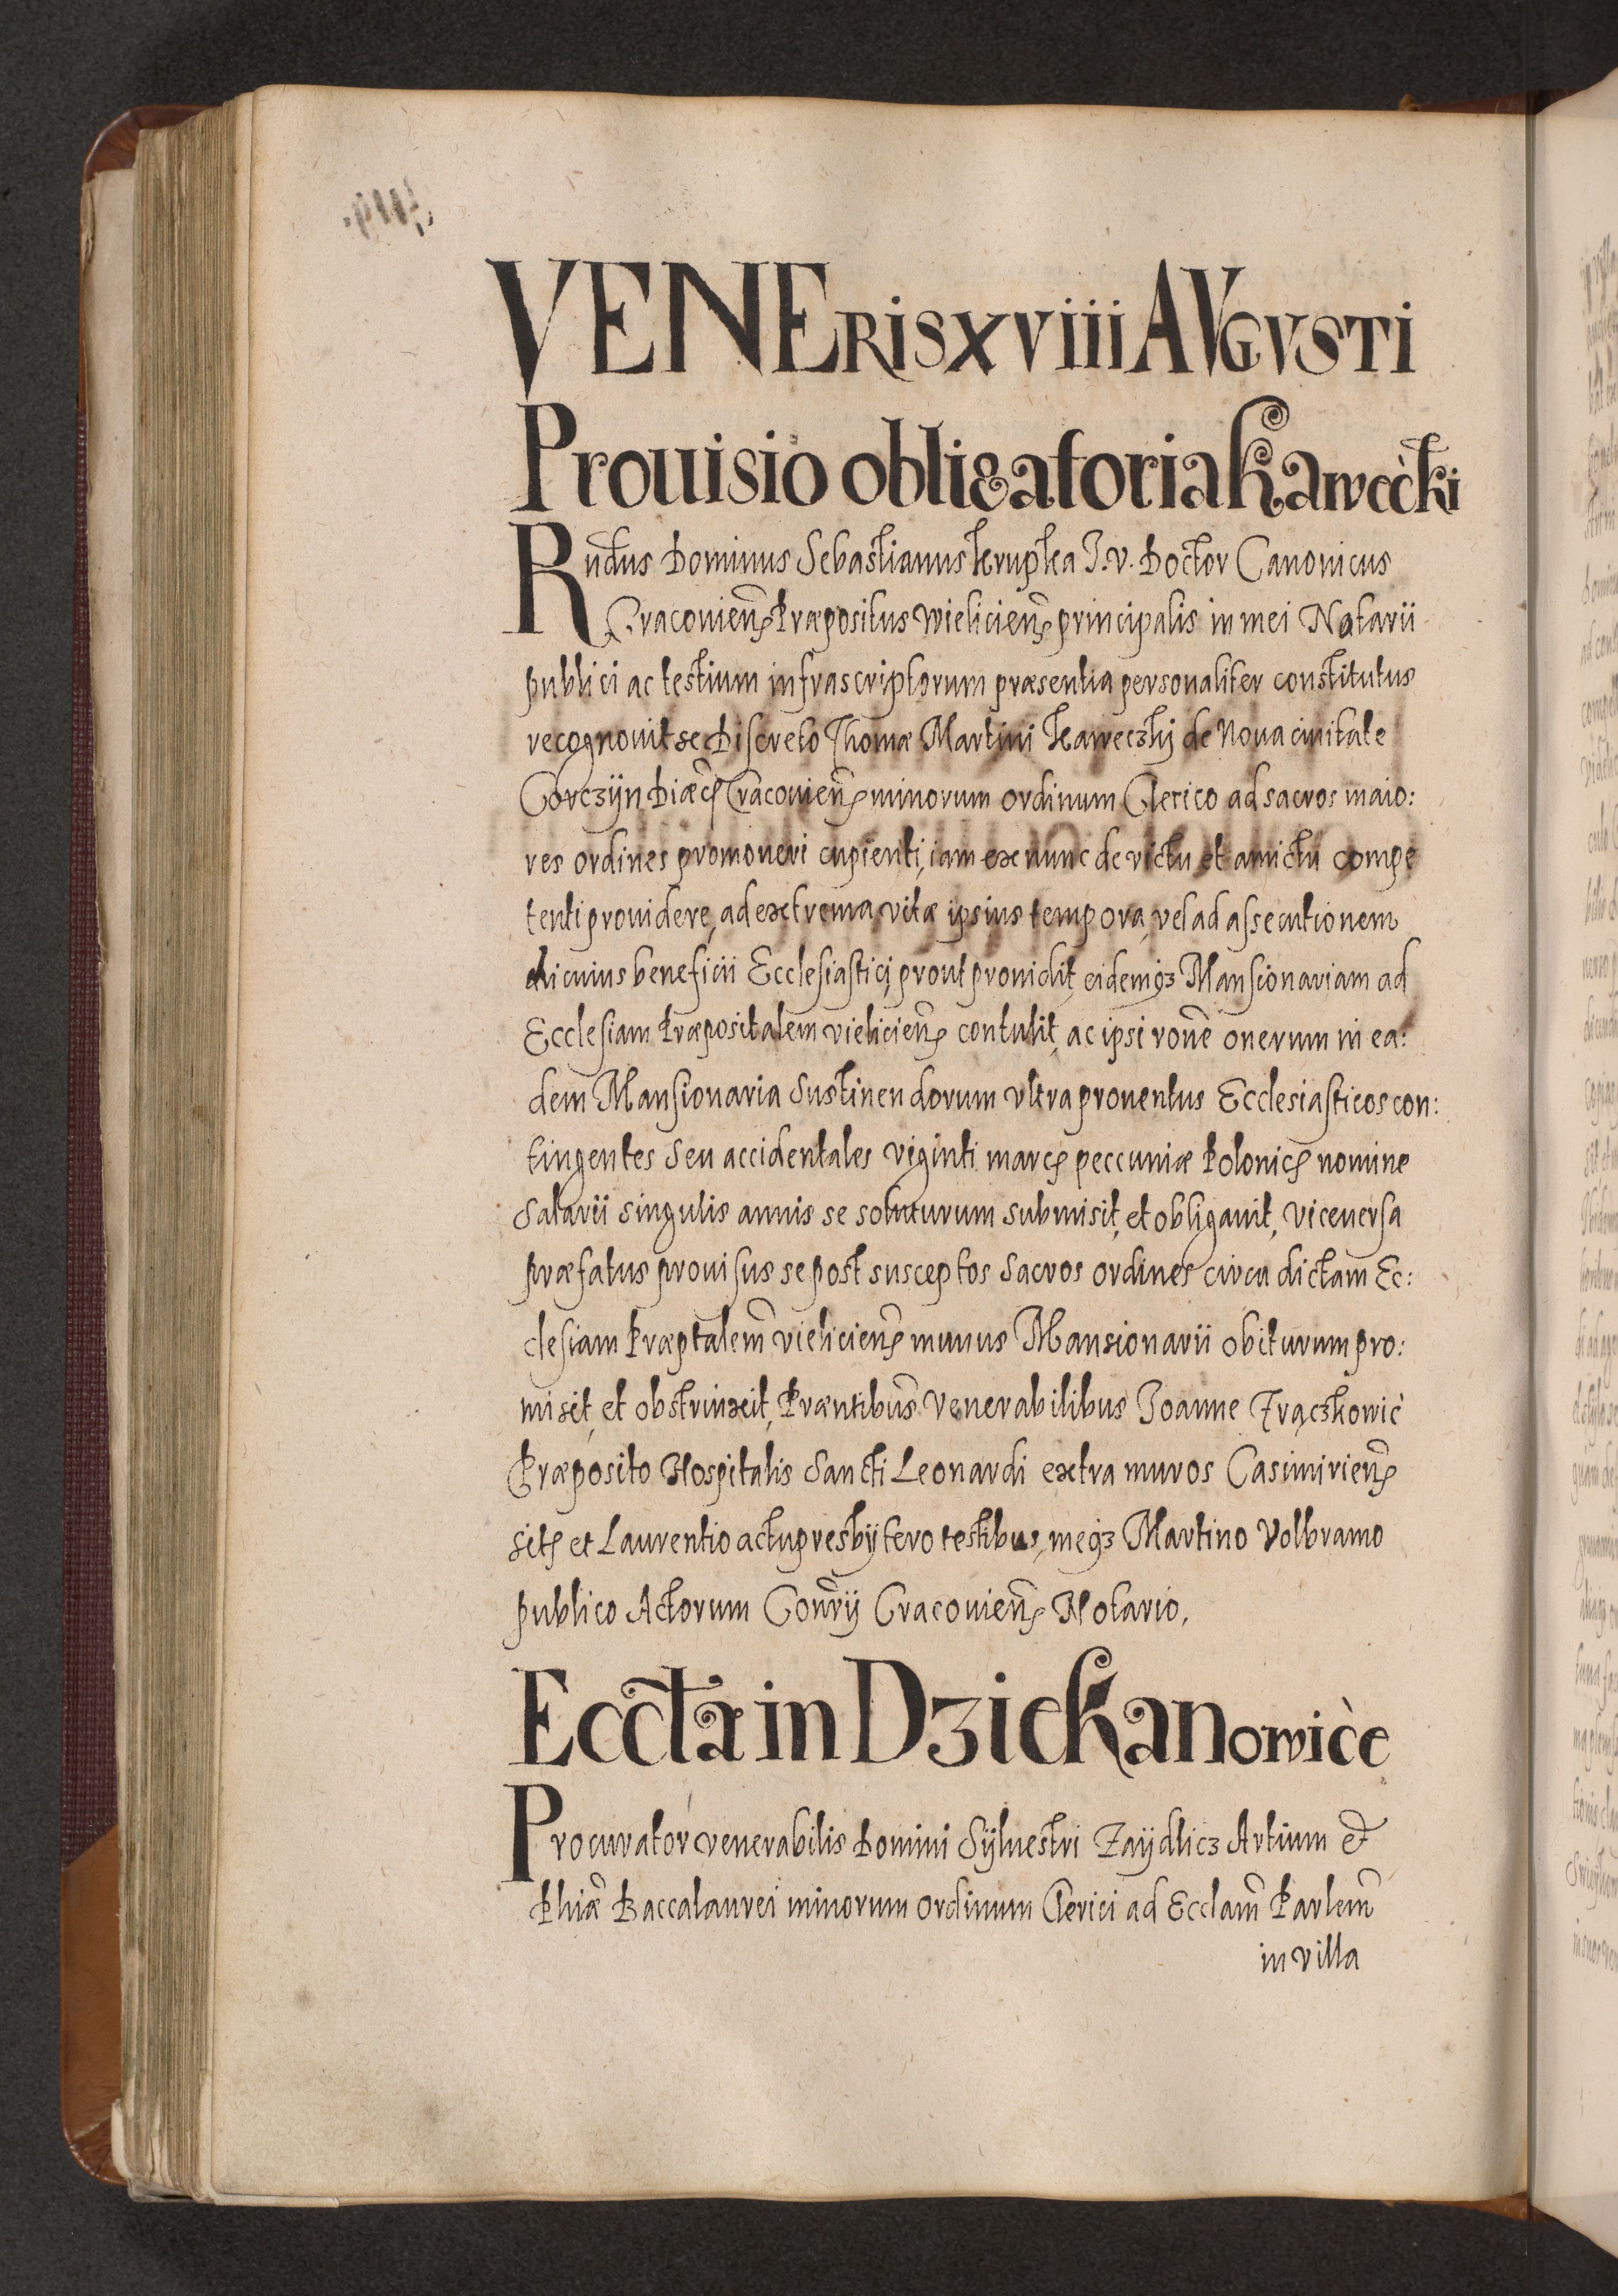 VENERIS XVIII AVGVSTI
Prouisio obligatoria Kawecƈki
Rudus Dominus Sebastianus Krupka J. V. Doctor Canonicus
Cracouien̄ Præpositus Wielicien̄ principalis in mei Notarii
publici ac testium infrascriptorum præsentia personaliter constitutus
recognouit se Discreto Thomæ Martini Kaweczkij de Noua ciuitate
Corczijn Diæcę Cracouien̄ minorum ordinum Clerico ad sacros maio:
res ordines promoueri cupienti, iam ex nunc de victu et amictu compe
tenti prouidere, ad extrema vitæ ipsius tempora, vel ad assecutionem
alicuius beneficii Ecclesiastici, prout prouidit, eidemqȝ Mansionariam ad
Ecclesiam Præpositalem vielicien̄ contulit, ac ipsi ron̄e onerum in ea:
dem Mansionaria sustinendorum vltra prouentus Ecclesiasticos con:
tingentes seu accidentales viginti marcę peccuniæ Polonicę nomine
salarii singulis annis se soluturum submisit, et obligauit, viceuersa
præfatus prouisus se post susceptos sacros ordines circa dictam Ec:
clesiam Præptalem̄ vielicien̄ munus Mansionarii obiturum pro:
misit, et obstrinxit, Præntibus̄ Venerabilibus Joanne Frączkowic̀
Præposito Hospitalis Sancti Leonardi extra muros Casimirien̄
sitę et Laurentio actu presbijtero testibus, meqȝ Martino Volbramo
publico Actorum Con̄rij Cracouien̄ Notario,
Eccl̄a in Dzickanowic̀e
Procurator venerabilis Domini Sijluestri Zaijdlicz Artium et
Phiǣ Baccalaurei minorum ordinum Clerici ad Ecclam̄ Parlem̄
in villa